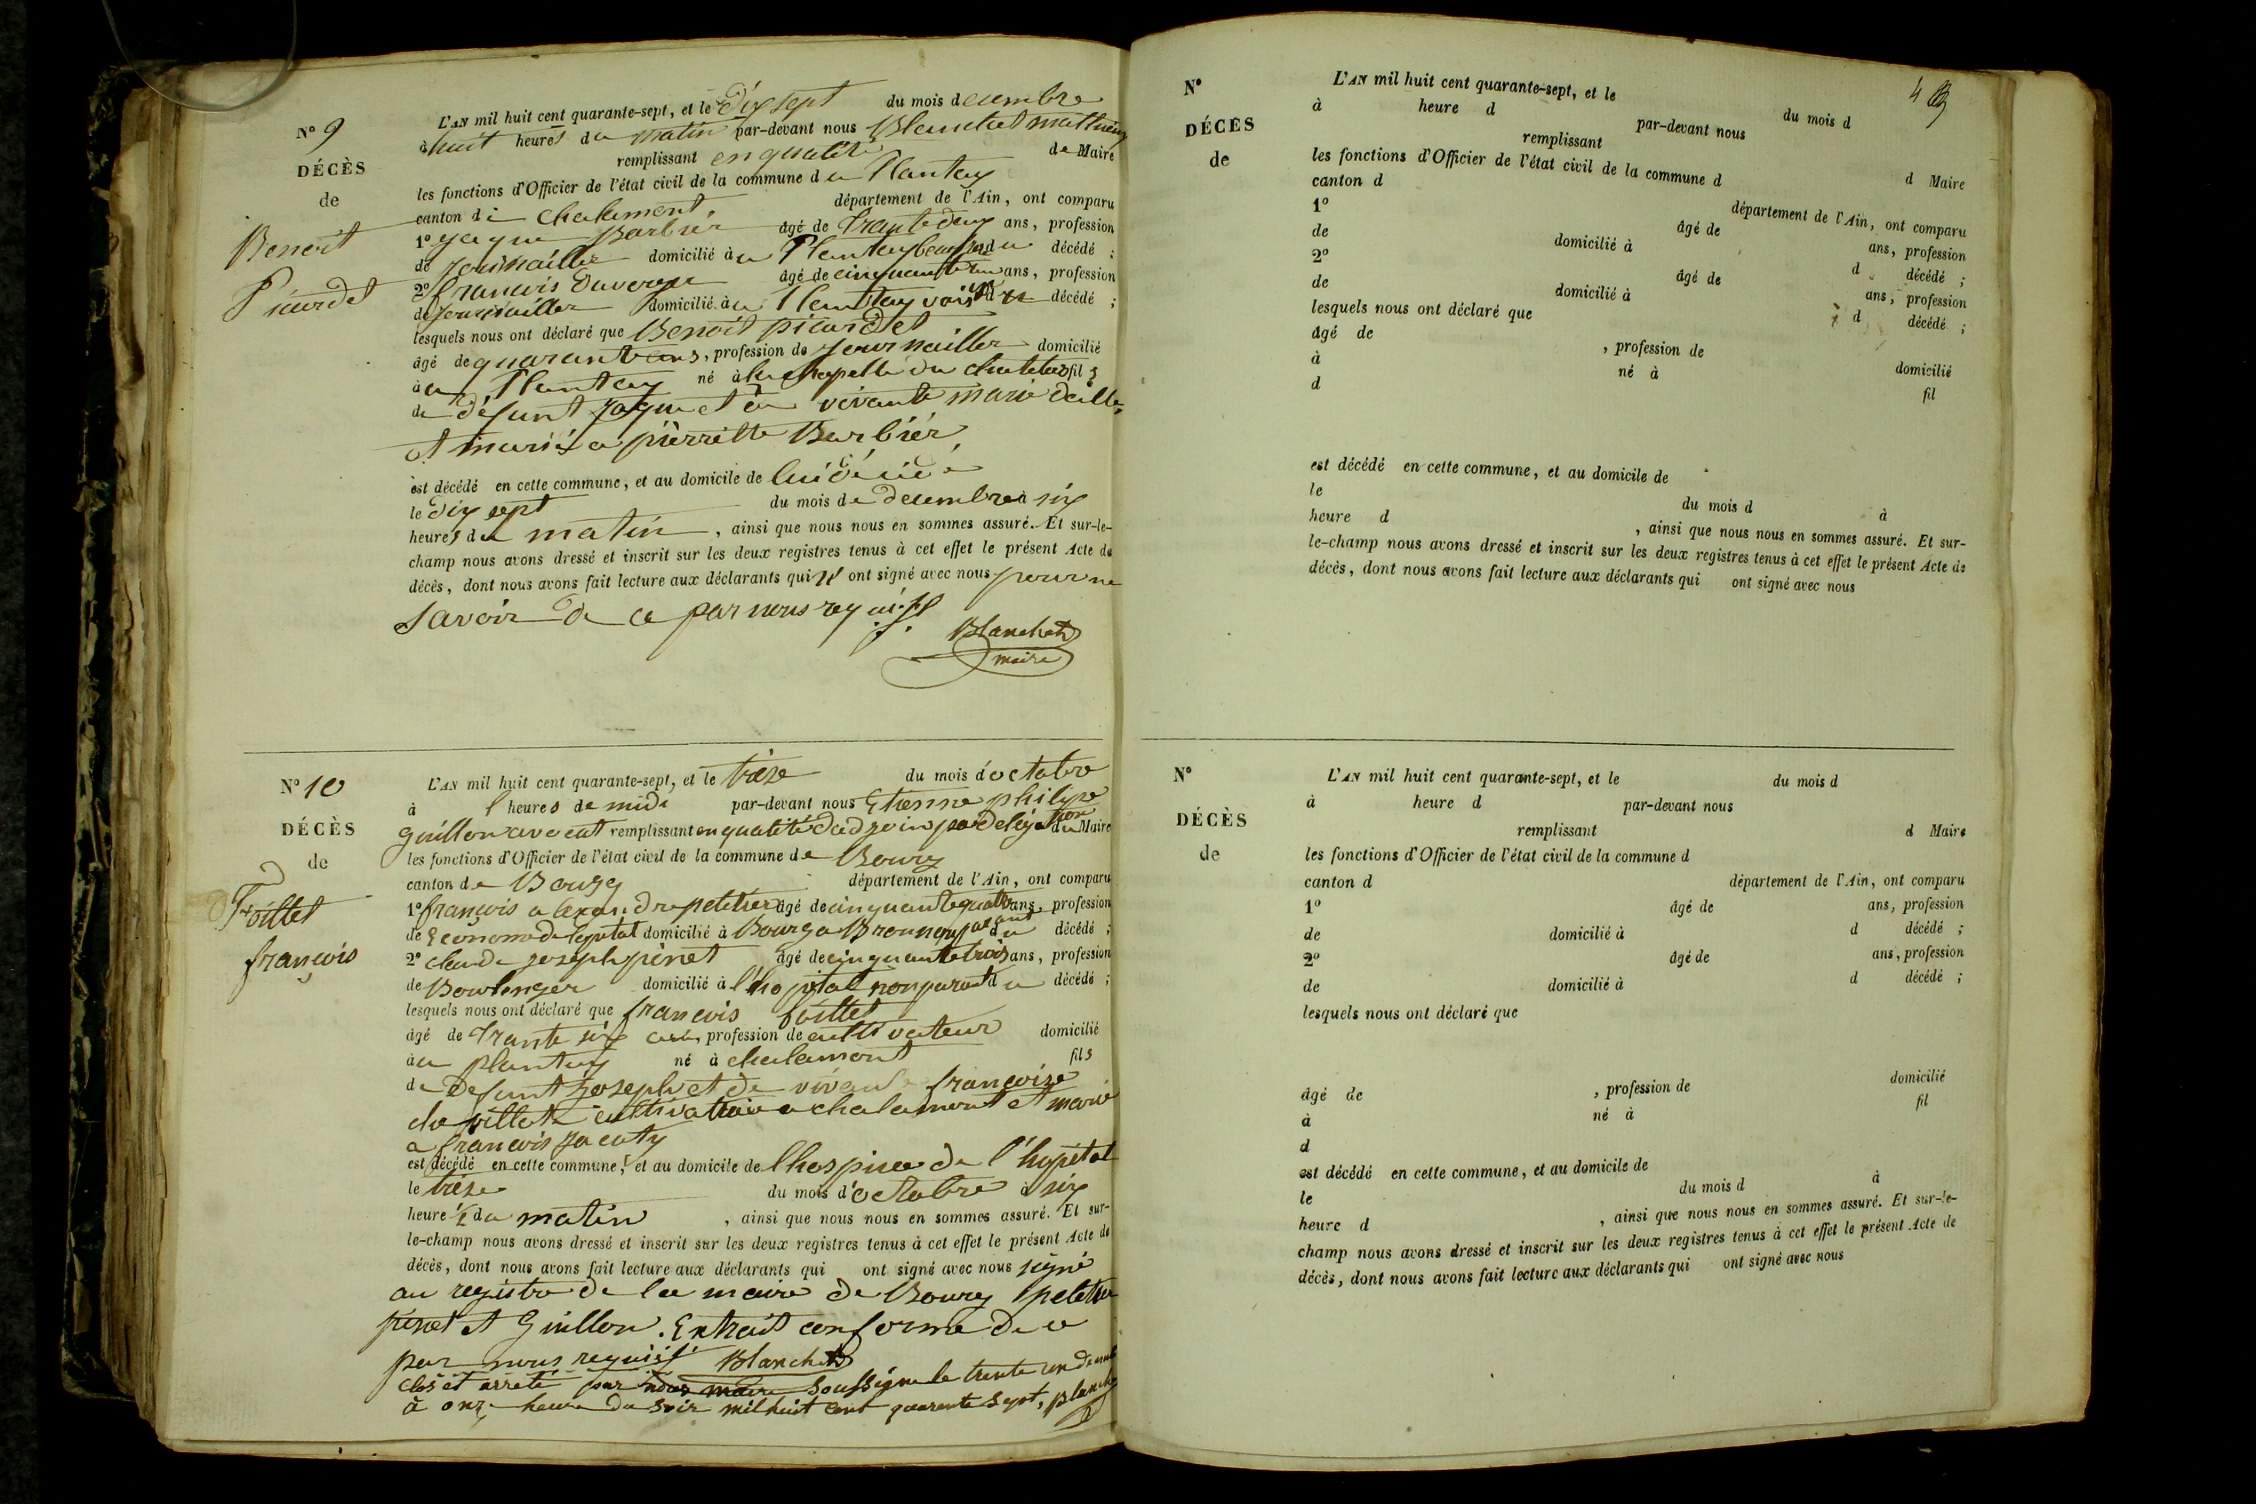 N° 9
DÉCÈS
de
Benoit
Picardet
L'AN mil huit cent quarante-sept, et le dix sept du mois decembre
à huit heures du matin par-devant nous Blanchet mathieu
remplissant en qualité de Maire
les fonctions d'Officier de l'état civil de la commune du Plantay
canton de chalamont, département de l'Ain, ont comparu
1° Jaque Barbier âgé de trante deux ans, profession
de journaillier domicilié à u Plantay beaufrere du décédé ;
2° francois Duverger âgé de cinquante un ans, profession
de journaillier domicilié à u Plantay voisin du décédé ;
lesquels nous ont déclaré que Benoit picardet
âgé de quarante ans, profession de journaillier domicilié
à u Plantay né à la chapelle du chatelard fils
de défunt Jaque et de vivante marie
et marié a pierrette Barbier,
est décédé en cette commune, et au domicile de lui décédé
le dix sept du mois de decembre à six
heures du matin, ainsi que nous nous en sommes assuré. Et sur-le-
champ nous avons dressé et inscrit sur les deux registres tenus à cet effet le présent Acte de
décès, dont nous avons fait lecture aux déclarants qui n' ont signé avec nous pour ne
savoir de ce par nous requis.
Blanchet
maire
N° 10
DÉCÈS
de
Foillet
françois
L'AN mil huit cent quarante-sept, et le trèse du mois d'octobre
à l heures de midi par-devant nous Etienne philipe
Guillon avocat remplissant en qualité d'adjoin par delegation du Maire
les fonctions d'Officier de l'état civil de la commune de Bourg
canton de Bourg département de l'Ain, ont comparu
1° françois alexandre petetier âgé de cinquante quatre ans, profession
de Econome de lopital domicilié à Bourg a Brou non parant du décédé ;
2° claude joseph pinet âgé de cinquante trois ans, profession
de Boulenger domicilié à l'hopital non parant du décédé ;
lesquels nous ont déclaré que francois foillet
âgé de trante six ans, profession de cultivateur domicilié
à u plantay né à chalamont fils
de défunt joseph et de vivante françoise
cultivatrice a chalamont et marié
a francois
est décédé en cette commune, et au domicile de lhospice de l'hopital
le trèse du mois d'octobre à six
heure ½ du matin, ainsi que nous nous en sommes assuré. Et sur-
le-champ nous avons dressé et inscrit sur les deux registres tenus à cet effet le présent Acte de
décès, dont nous avons fait lecture aux déclarants qui ont signé avec nous signé
au registre de la mairie de Bourg petetier
pinet et Guillon. Extrait conforme de ce
par nous requis Blanchet
clos et arreté par nous maire soussigné le trente un
à onze heure du soir mil huit cent quarante sept, Blanchet
4
N°
DÉCÈS
de
L'AN mil huit cent quarante-sept, et le du mois d
à heure d par-devant nous
remplissant d Maire
les fonctions d'Officier de l'état civil de la commune d
canton d département de l'Ain, ont comparu
1° âgé de ans, profession
de domicilié à d décédé ;
2° âgé de ans, profession
de domicilié à d décédé ;
lesquels nous ont déclaré que
âgé de , profession de domicilié
à né à fil
d
est décédé en cette commune, et au domicile de
le du mois d à
heure d , ainsi que nous nous en sommes assuré. Et sur-
le-champ nous avons dressé et inscrit sur les deux registres tenus à cet effet le présent Acte de
décès, dont nous avons fait lecture aux déclarants qui ont signé avec nous
N°
DÉCÈS
de
L'AN mil huit cent quarante-sept, et le du mois d
à heure d par-devant nous
remplissant d Maire
les fonctions d'Officier de l'état civil de la commune d
canton d département de l'Ain, ont comparu
1° âgé de ans, profession
de domicilié à d décédé ;
2° âgé de ans, profession
de domicilié à d décédé ;
lesquels nous ont déclaré que
âgé de , profession de domicilié
à né à fil
d
est décédé en cette commune, et au domicile de
le du mois d à
heure d , ainsi que nous nous en sommes assuré. Et sur-le-
champ nous avons dressé et inscrit sur les deux registres tenus à cet effet le présent Acte de
décès, dont nous avons fait lecture aux déclarants qui ont signé avec nous